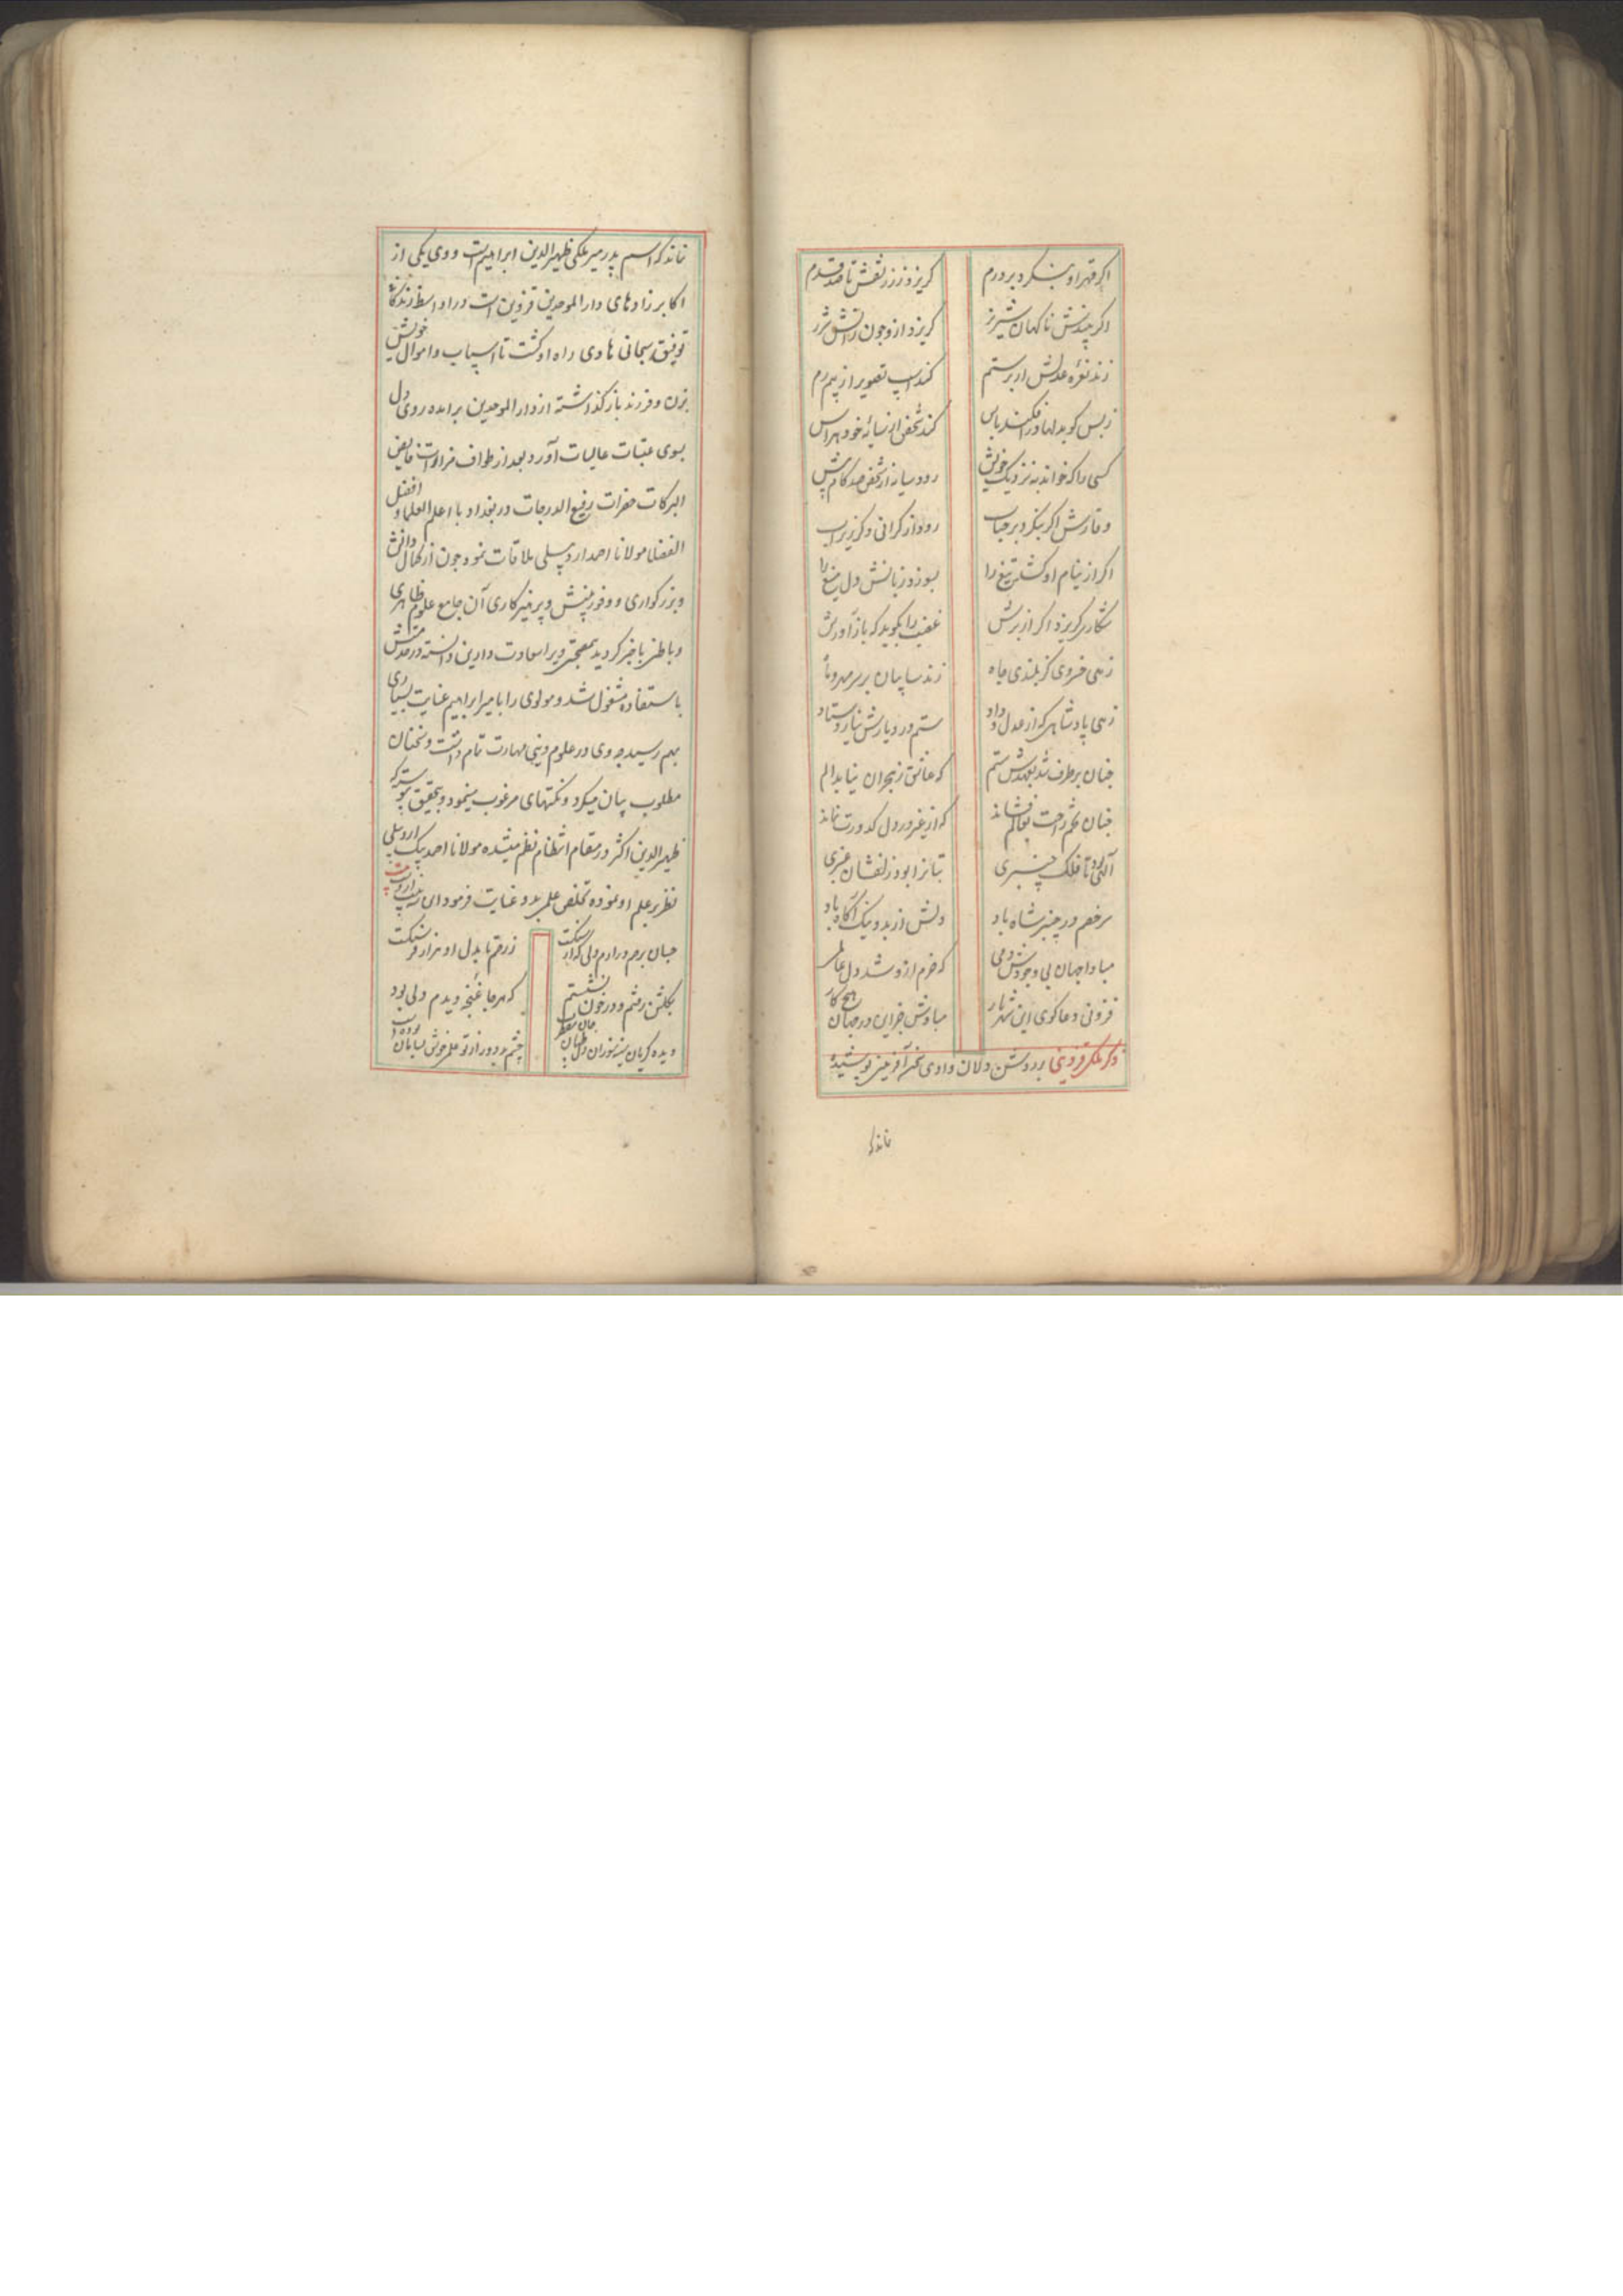 اکر قهر او بنکرد بر درم
کریزد ز زر نقش تا صد قدم
اکر بیندش ناکهان شیر نر
کریزد ازو چون ز آتش شرر
زند نعره عدلش ار بر ستم
کند اسپ تصویر از بیم رم
ز بس کو بدلها در افکند باس
کند شخص از سایهٔ خود هراس
کسی را که خواند به نزدیک خویش
رود سایه از شخص صد کام پیش
وقارش اکر بنکرد بر حباب
رود از کرانی و کر زیر آب
اکر از نیام او کشد تیغ را
بسوزد زبانش دل میغ را
شکاری کریزد اکر از برش
غضب را بکوید که باز آورش
زهی خسروی کز بلندی جاه
زند سایبان بر سر مهر و ماه
زهی پادشاهی که از عدل و داد
ستم در دیارش نیارد ستاد
چنان برطرف شد بعهدش ستم
که عاشق ز هجران نیابد الم
چنان تخم راحت بعالم فشاند
که از غیر در دل کدورت نماند
آلهی بود تا فلک چنبری
بتانرا بود زلفشان عنبری
سر خصم در چنبر شاه باد
دلش از بد و نیک آکاه باد
مبادا جهان بی وجودش دمی
که خرم ازو شد دل عالمی
فزونی دعاکوی این شهریار
مبادش جز این در جهان هیچ کار
ذکر ملکی قزوینی بر روشن دلان وادی سخن آفرینی پوشیده
نماند که
نماند که اسم پدر میر ملکی ظهیر الدین ابراهیم است و وی یکی از
اکابر زادهای دار الموحدین قزوین است در اواسط زندکانی
توفیق سبحانی هادی راه او کشت تا اسباب و اموال خویش
بزن و فرزند باز کذاشته از دار الموحدین برامده روی دل
بسوی عتبات عالیات آورد بعد از طواف مزارات فایض
البرکات حضرات رفیع الدرجات در بغداد با اعلم العلما و افضل
الفضلا مولانا احمد اردبیلی ملاقات نمود چون از کمال دانش
و بزرکواری و وفور بینش و پرهیزکاری آن جامع علوم ظاهری
و باطنی باخبر کردید صحبت ویرا سعادت دارین دانسته در خدمتش
باستفاده مشغول شد و مولوی را با میر ابراهیم عنایت بسیاری
بهم رسید چه وی در علوم دینی مهارت تمام داشت و سخنان
مطلوب بیان میکرد و نکتهای مرغوب مینمود و بتحقیق پیوسته که
ظهیر الدین اکثر در مقام انتظام نظم میشده مولانا احمد بیک اردبیلی
نظر بر علم او نموده تخلص علمی بدو عنایت فرمود این
چنان برهم در ادم دلی که از
ز رقم تا بدل او هزار فرسنکست
بکلشن رفتم و در خون نشستم
که هر جا غنچه دیدم دلی بود
دیده کریان سینه سوزان دل طپان
چشم بد دور از تو علمی خوش بسامان